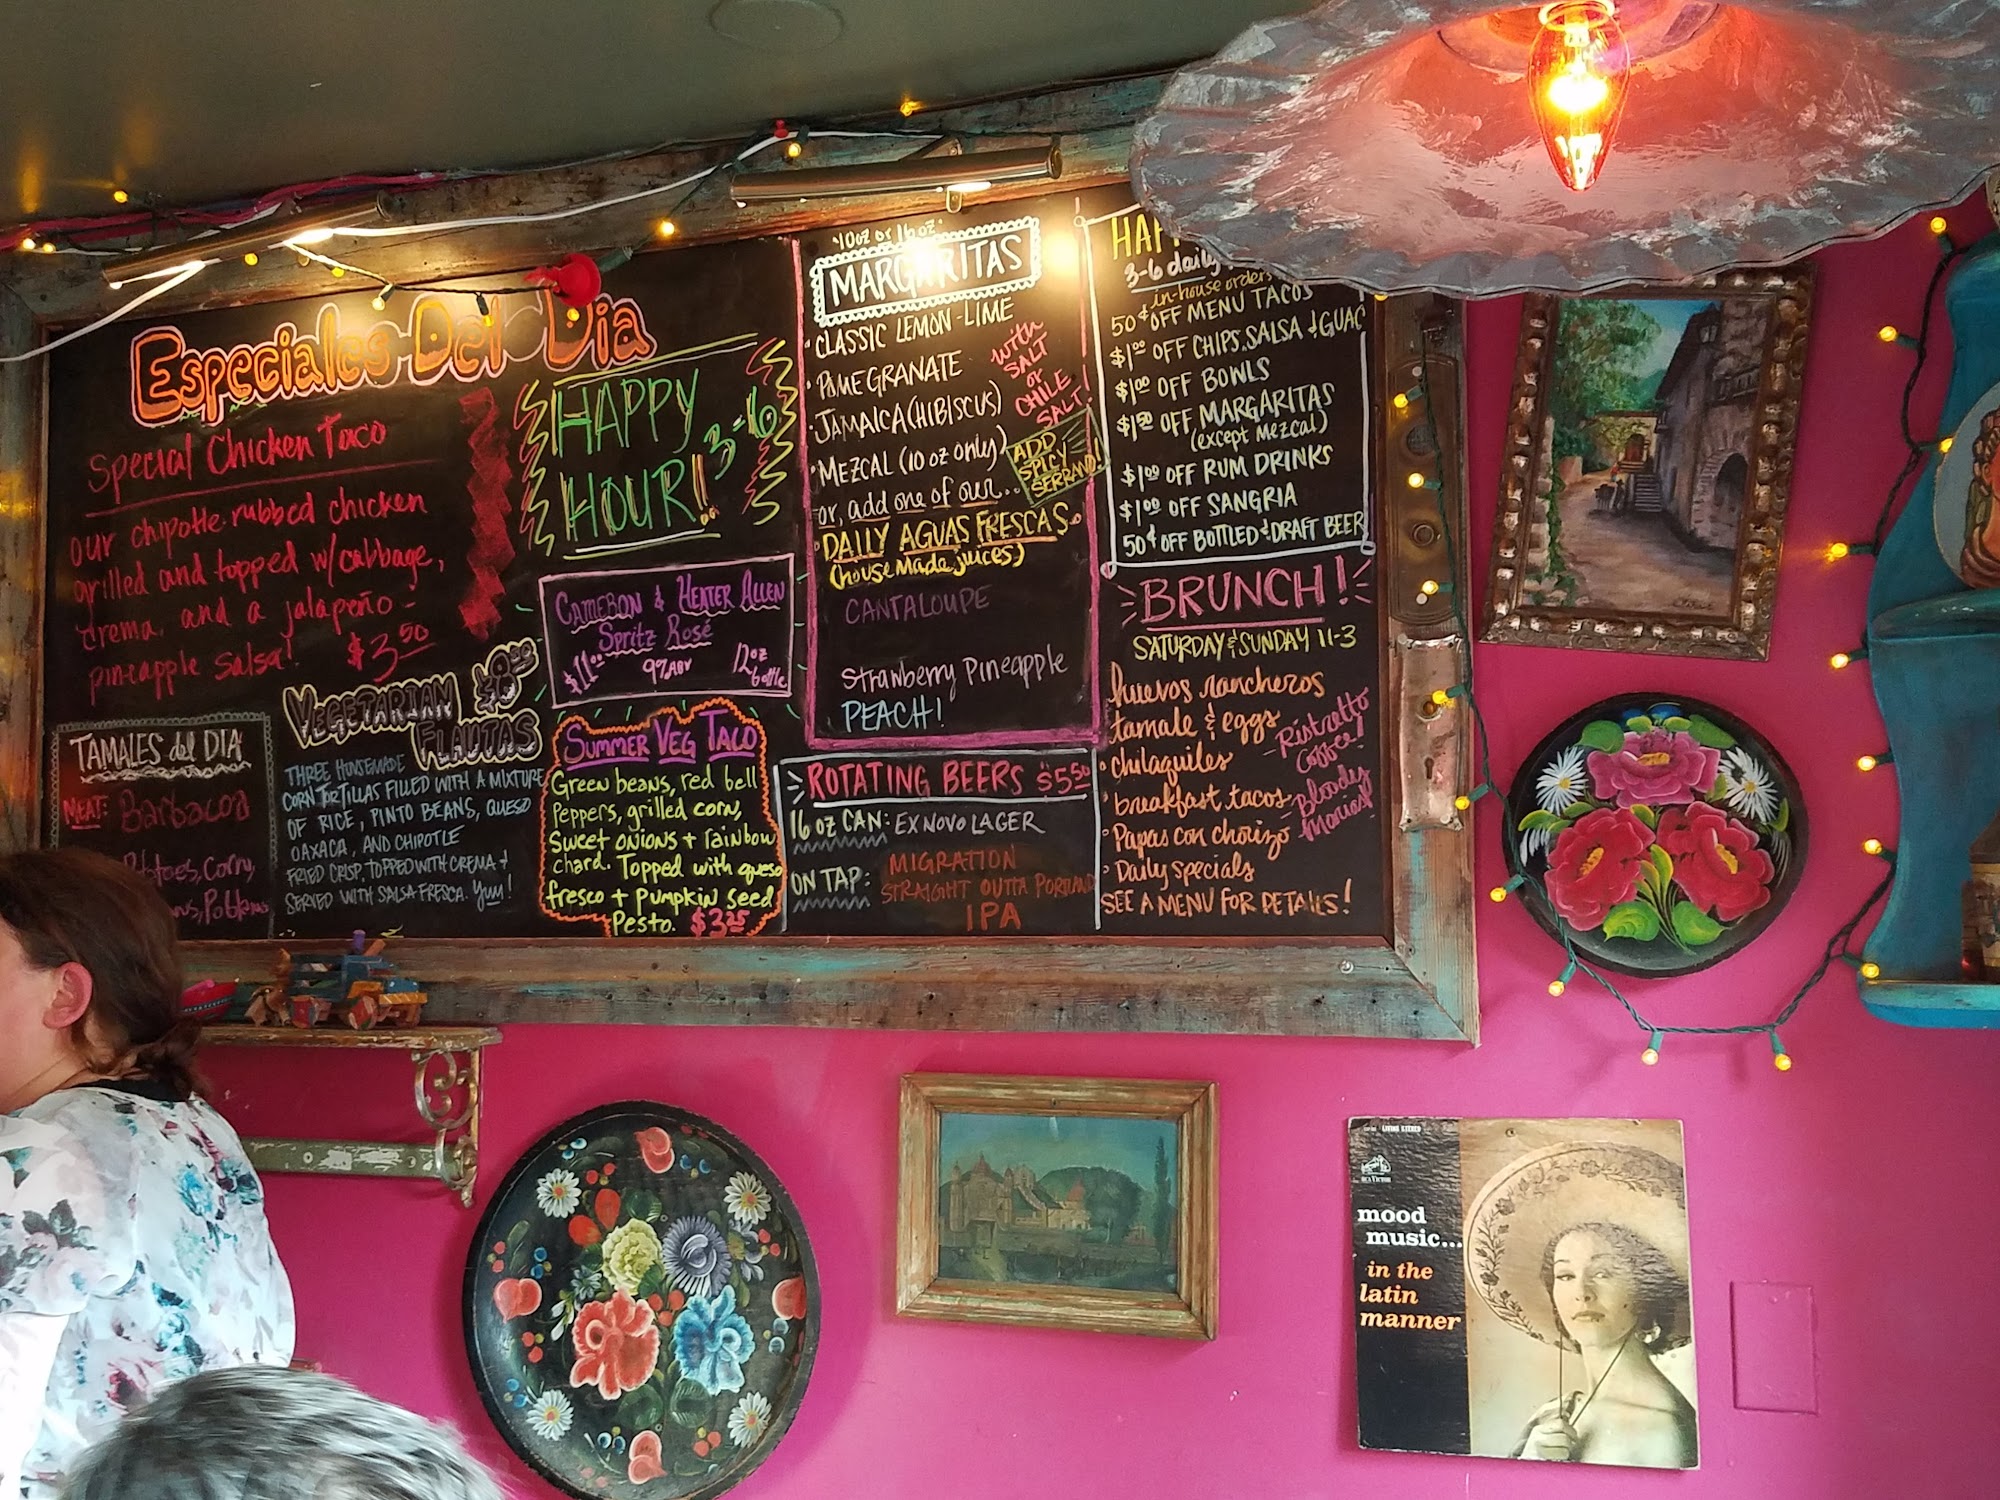 Especiales Del Dia
Special Chicken Taco
our chipotle rubbed chicken
grilled and topped w/cabbage,
crema, and a jalapeño-
pineapple salsa! $3.50
HAPPY
HOUR! 3-6
CAMERON & HEATER ALLEN
Spritz Rosé
$11.00 9% ABV 12oz bottle
TAMALES del DIA
MEAT: Barbacoa
Corn,
VEGETARIAN
FLAUTAS
THREE HOUSEMADE
CORN TORTILLAS FILLED WITH A MIXTURE
OF RICE, PINTO BEANS, QUESO
OAXACA, AND CHIPOTLE
FRIED CRISP, TOPPED WITH CREMA &
SERVED WITH SALSA FRESCA. Yum!
SUMMER VEG TACO
Green beans, red bell
Peppers, grilled corn,
Sweet onions + rainbow
chard. Topped with queso
fresco + pumpkin seed
Pesto. $3.25
10oz or 16oz
MARGARITAS
• CLASSIC LEMON-LIME
• POMEGRANATE
• JAMAICA (HIBISCUS)
• MEZCAL (10 oz only)
with
SALT
or
CHILE
SALT!
ADD
SPICY
SERRANO!
or, add one of our...
DAILY AGUAS FRESCAS
(house made juices)
CANTALOUPE
Strawberry Pineapple
PEACH!
ROTATING BEERS $5.50
16 oz CAN: EX NOVO LAGER
ON TAP: MIGRATION
STRAIGHT OUTTA PORTLAND
IPA
3-6 daily
in-house orders
50¢ OFF MENU TACOS
$1.00 OFF CHIPS, SALSA & GUAC
$1.00 OFF BOWLS
$1.50 OFF MARGARITAS
(except Mezcal)
$1.00 OFF RUM DRINKS
$1.00 OFF SANGRIA
50¢ OFF BOTTLED & DRAFT BEER
BRUNCH!
SATURDAY & SUNDAY 11-3
huevos rancheros
tamale & eggs
• chilaquiles
• breakfast tacos
• Papas con chorizo
• Daily specials
- Ristretto
Coffee!
- Bloody
Marias!
SEE A MENU FOR DETAILS!
LIVING STEREO
RCA VICTOR
mood
music...
in the
latin
manner